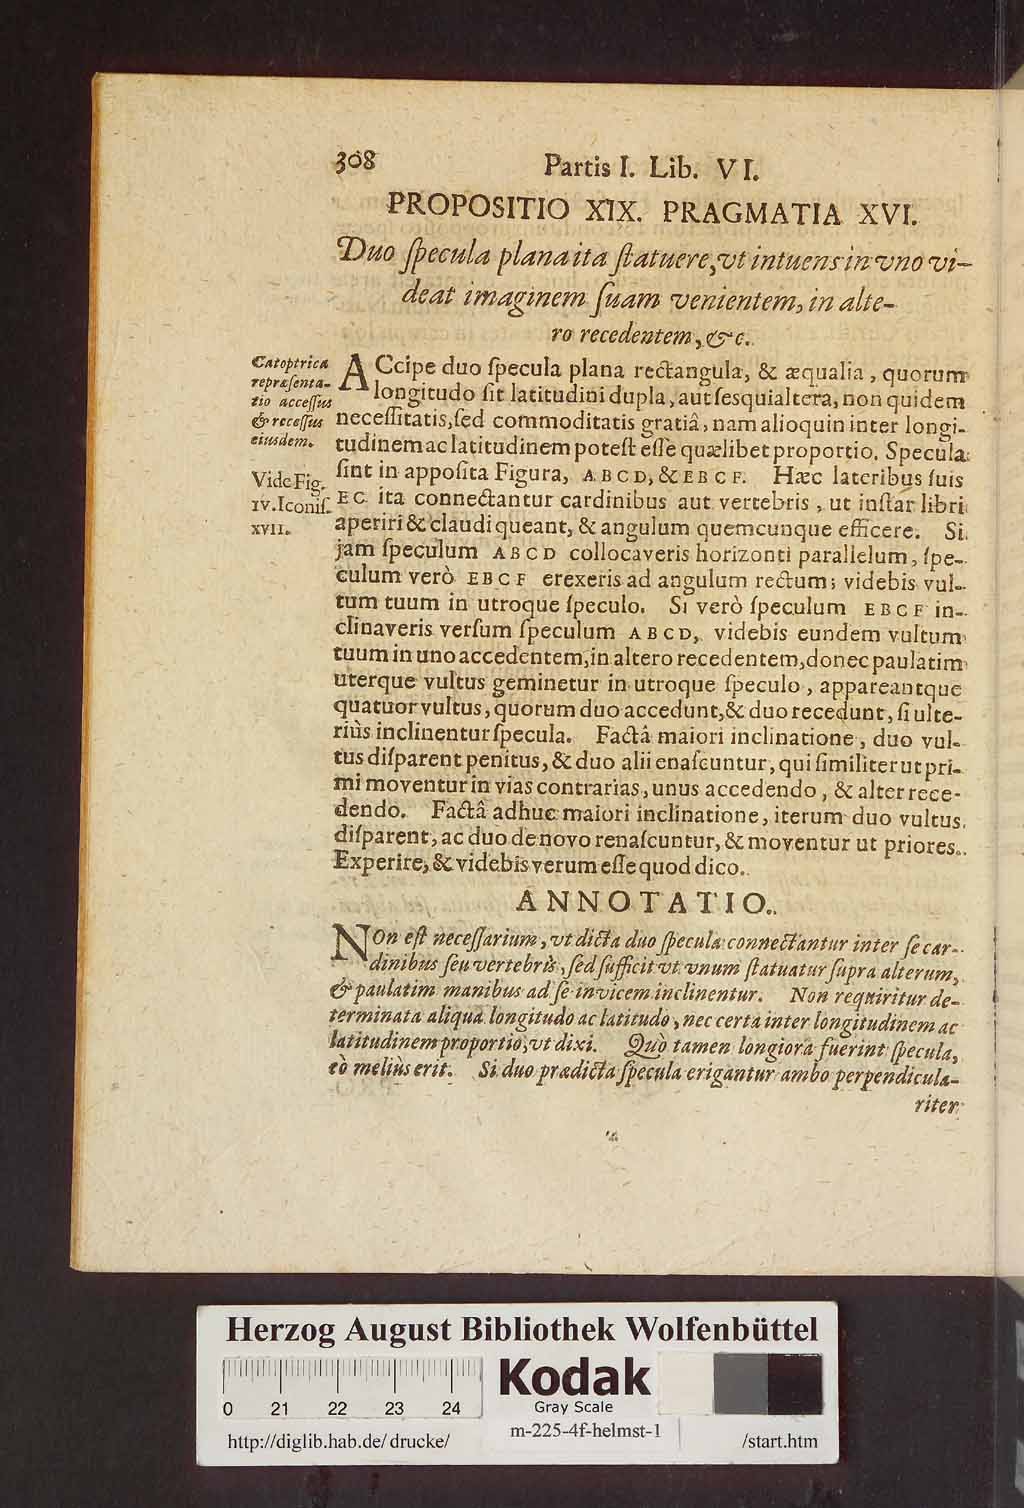 308
Partis I. Lib. VI.
PROPOSITIO XIX. PRAGMATIA XVI.
Duo ſpecula plana ita ſtatuere, vt intuens in vno vi-
deat imaginem ſuam venientem, in alte-
ro recedentem, &c.
Catoptrica
repræſenta-
tio acceſſus
& receſſus
eiusdem.
Vide Fig.
IV. Iconiſ.
XVII.
ACcipe duo ſpecula plana rectangula, & æqualia, quorum
longitudo ſit latitudini dupla, aut ſesquialtera, non quidem
neceſſitatis, ſed commoditatis gratiâ, nam alioquin inter longi-
tudinem ac latitudinem poteſt eſſe quælibet proportio. Specula
ſint in appoſita Figura, ABCD, & EBCF. Hæc lateribus ſuis
EC ita connectantur cardinibus aut vertebris, ut inſtar libri
aperiri & claudi queant, & angulum quemcunque efficere. Si
jam ſpeculum ABCD collocaveris horizonti parallelum, ſpe-
culum verò EBCF erexeris ad angulum rectum; videbis vul-
tum tuum in utroque ſpeculo. Si verò ſpeculum EBCF in-
clinaveris verſum ſpeculum ABCD, videbis eundem vultum
tuum in uno accedentem, in altero recedentem, donec paulatim
uterque vultus geminetur in utroque ſpeculo, appareantque
quatuor vultus, quorum duo accedunt, & duo recedunt, ſi ulte-
riùs inclinentur ſpecula. Factâ maiori inclinatione, duo vul-
tus diſparent penitus, & duo alii enaſcuntur, qui ſimiliter ut pri-
mi moventur in vias contrarias, unus accedendo, & alter rece-
dendo. Factâ adhuc maiori inclinatione, iterum duo vultus
diſparent, ac duo de novo renaſcuntur, & moventur ut priores.
Experire, & videbis verum eſſe quod dico.
ANNOTATIO.
NOn eſt neceſſarium, vt dicta duo ſpecula connectantur inter ſe car-
dinibus ſeu vertebris, ſed ſufficit vt vnum ſtatuatur ſupra alterum,
& paulatim manibus ad ſe invicem inclinentur. Non requiritur de-
terminata aliqua longitudo ac latitudo, nec certa inter longitudinem ac
latitudinem proportio, vt dixi. Quò tamen longiora fuerint ſpecula,
eò meliùs erit. Si duo prædicta ſpecula erigantur ambo perpendicula-
riter
Herzog August Bibliothek Wolfenbüttel
0 21 22 23 24
Kodak
Gray Scale
http://diglib.hab.de/drucke/
m-225-4f-helmst-1
/start.htm